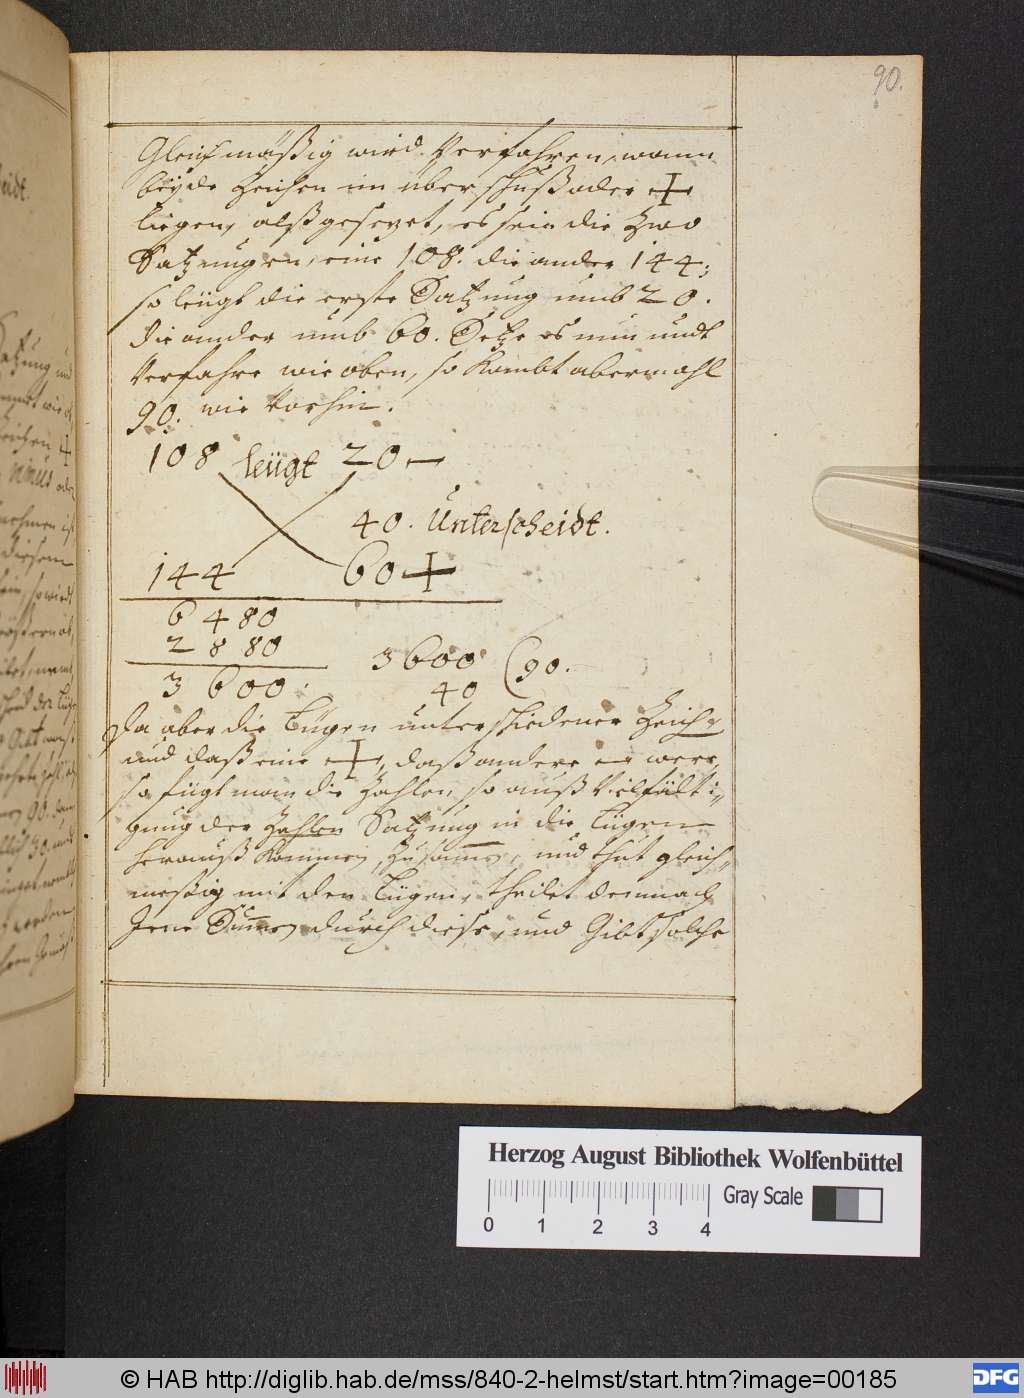 90.
Gleichmäßig wird Verfahren, wann
beyde Zeichen im überschuß oder +
liegen, alß gesezet, es sein die Zwo
Satzungen, eine 108. die ander 144;
so leügt die erste Satzung umb 20.
die ander umb 60. Setze es nun undt
Verfahre wie oben, so kombt abermahl
90. wie Vorhin.
108 leügt 20 —
40. Unterscheidt.
144 60 +
6480
2880
3600 (90.
3600.
40
Da aber die Lügen unterschiedener Zeich=
und daß eine +, daß andere — were,
so fügt man die Zahlen, so auß Vielfälti=
gung der Zahlen Satzung in die Lügen
herauß kommen, Zusammen, und thut gleich=
meßig mit den Lügen, theilet demnach
Jene Summen durch diese, und Gibt solche
Herzog August Bibliothek Wolfenbüttel
Gray Scale
0 1 2 3 4
© HAB http://diglib.hab.de/mss/840-2-helmst/start.htm?image=00185
DFG